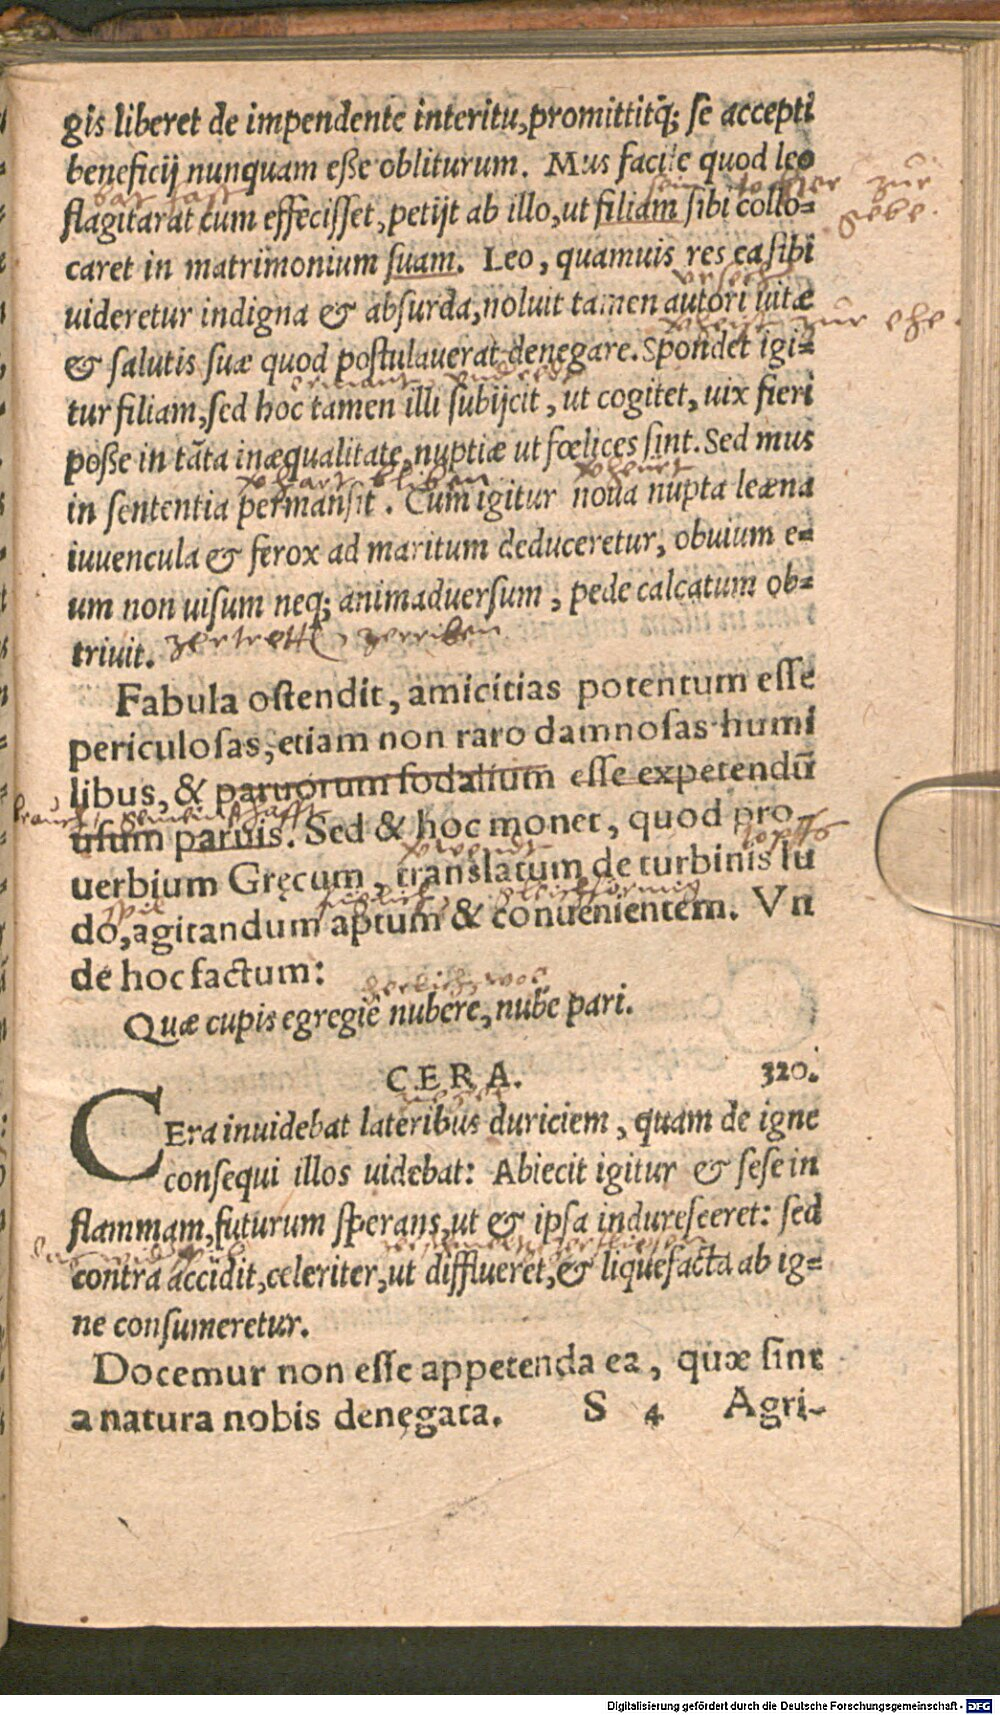 gis liberet de impendente interitu, promittitq́; se accepti
beneficij nunquam eſſe obliturum. Mus facile quod leo
bat hast
ſein tochter zur
flagitarat cum effeciſſet, petijt ab illo, ut filiam ſibi collo-
gebe.
caret in matrimonium ſuam. Leo, quamuis res ea ſibi
ursech
uideretur indigna & abſurda, noluit tamen autori uitæ
zur ehe.
& ſalutis ſuæ quod poſtulauerat denegare. Spondet igi-
ermant
tur filiam, ſed hoc tamen illi ſubijcit, ut cogitet, uix fieri
poſſe in tãta inæqualitate, nuptiæ ut fœlices ſint. Sed mus
bliben
in ſententia permanſit. Cum igitur noua nupta leæna
iuuencula & ferox ad maritum deduceretur, obuium e-
um non uiſum neq; animaduerſum, pede calcatum ob-
triuit. zertrette zerriben
Fabula oſtendit, amicitias potentum eſſe
periculoſas, etiam non raro damnoſas humi
libus, & paruorum ſodalium eſſe expetendũ
brauch, gemeinschafft
uſum paruis. Sed & hoc monet, quod pro-
topffs
uerbium Gręcum, translatum de turbinis lu
spil
gleichförmig
do, agitandum aptum & conuenientem. Vn
de hoc factum:
herlich, wol
Quæ cupis egregiè nubere, nube pari.
CERA. 320.
CEra inuidebat lateribus duriciem, quam de igne
conſequi illos uidebat: Abiecit igitur & ſeſe in
flammam, futurum ſperans, ut & ipſa indureſeeret: ſed
contra accidit, celeriter, ut difflueret, & liquefacta ab ig-
ne conſumeretur.
Docemur non eſſe appetenda ea, quæ ſint
a natura nobis denęgata. S 4 Agri-
Digitalisierung gefördert durch die Deutsche Forschungsgemeinschaft - DFG